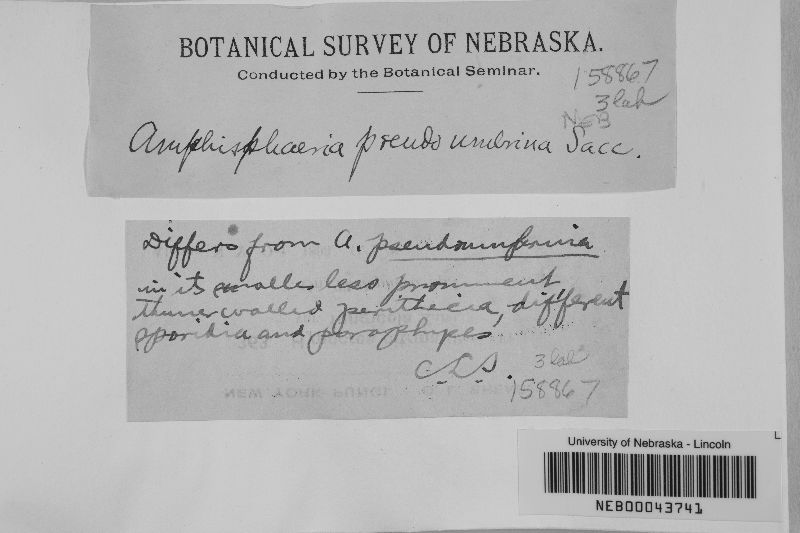 BOTANICAL SURVEY OF NEBRASKA.
Conducted by the Botanical Seminar.
158867
3 lab
NEB
Amphisphaeria pseudo umbrina Sacc.
Differs from A. pseudoumbrina
in its smaller less prominent
thinner walled perithecia, different
sporidia and paraphyses
C.L.S.
3 lab
158867
NEW YORK FUNGI
University of Nebraska - Lincoln
NEB00043741
L